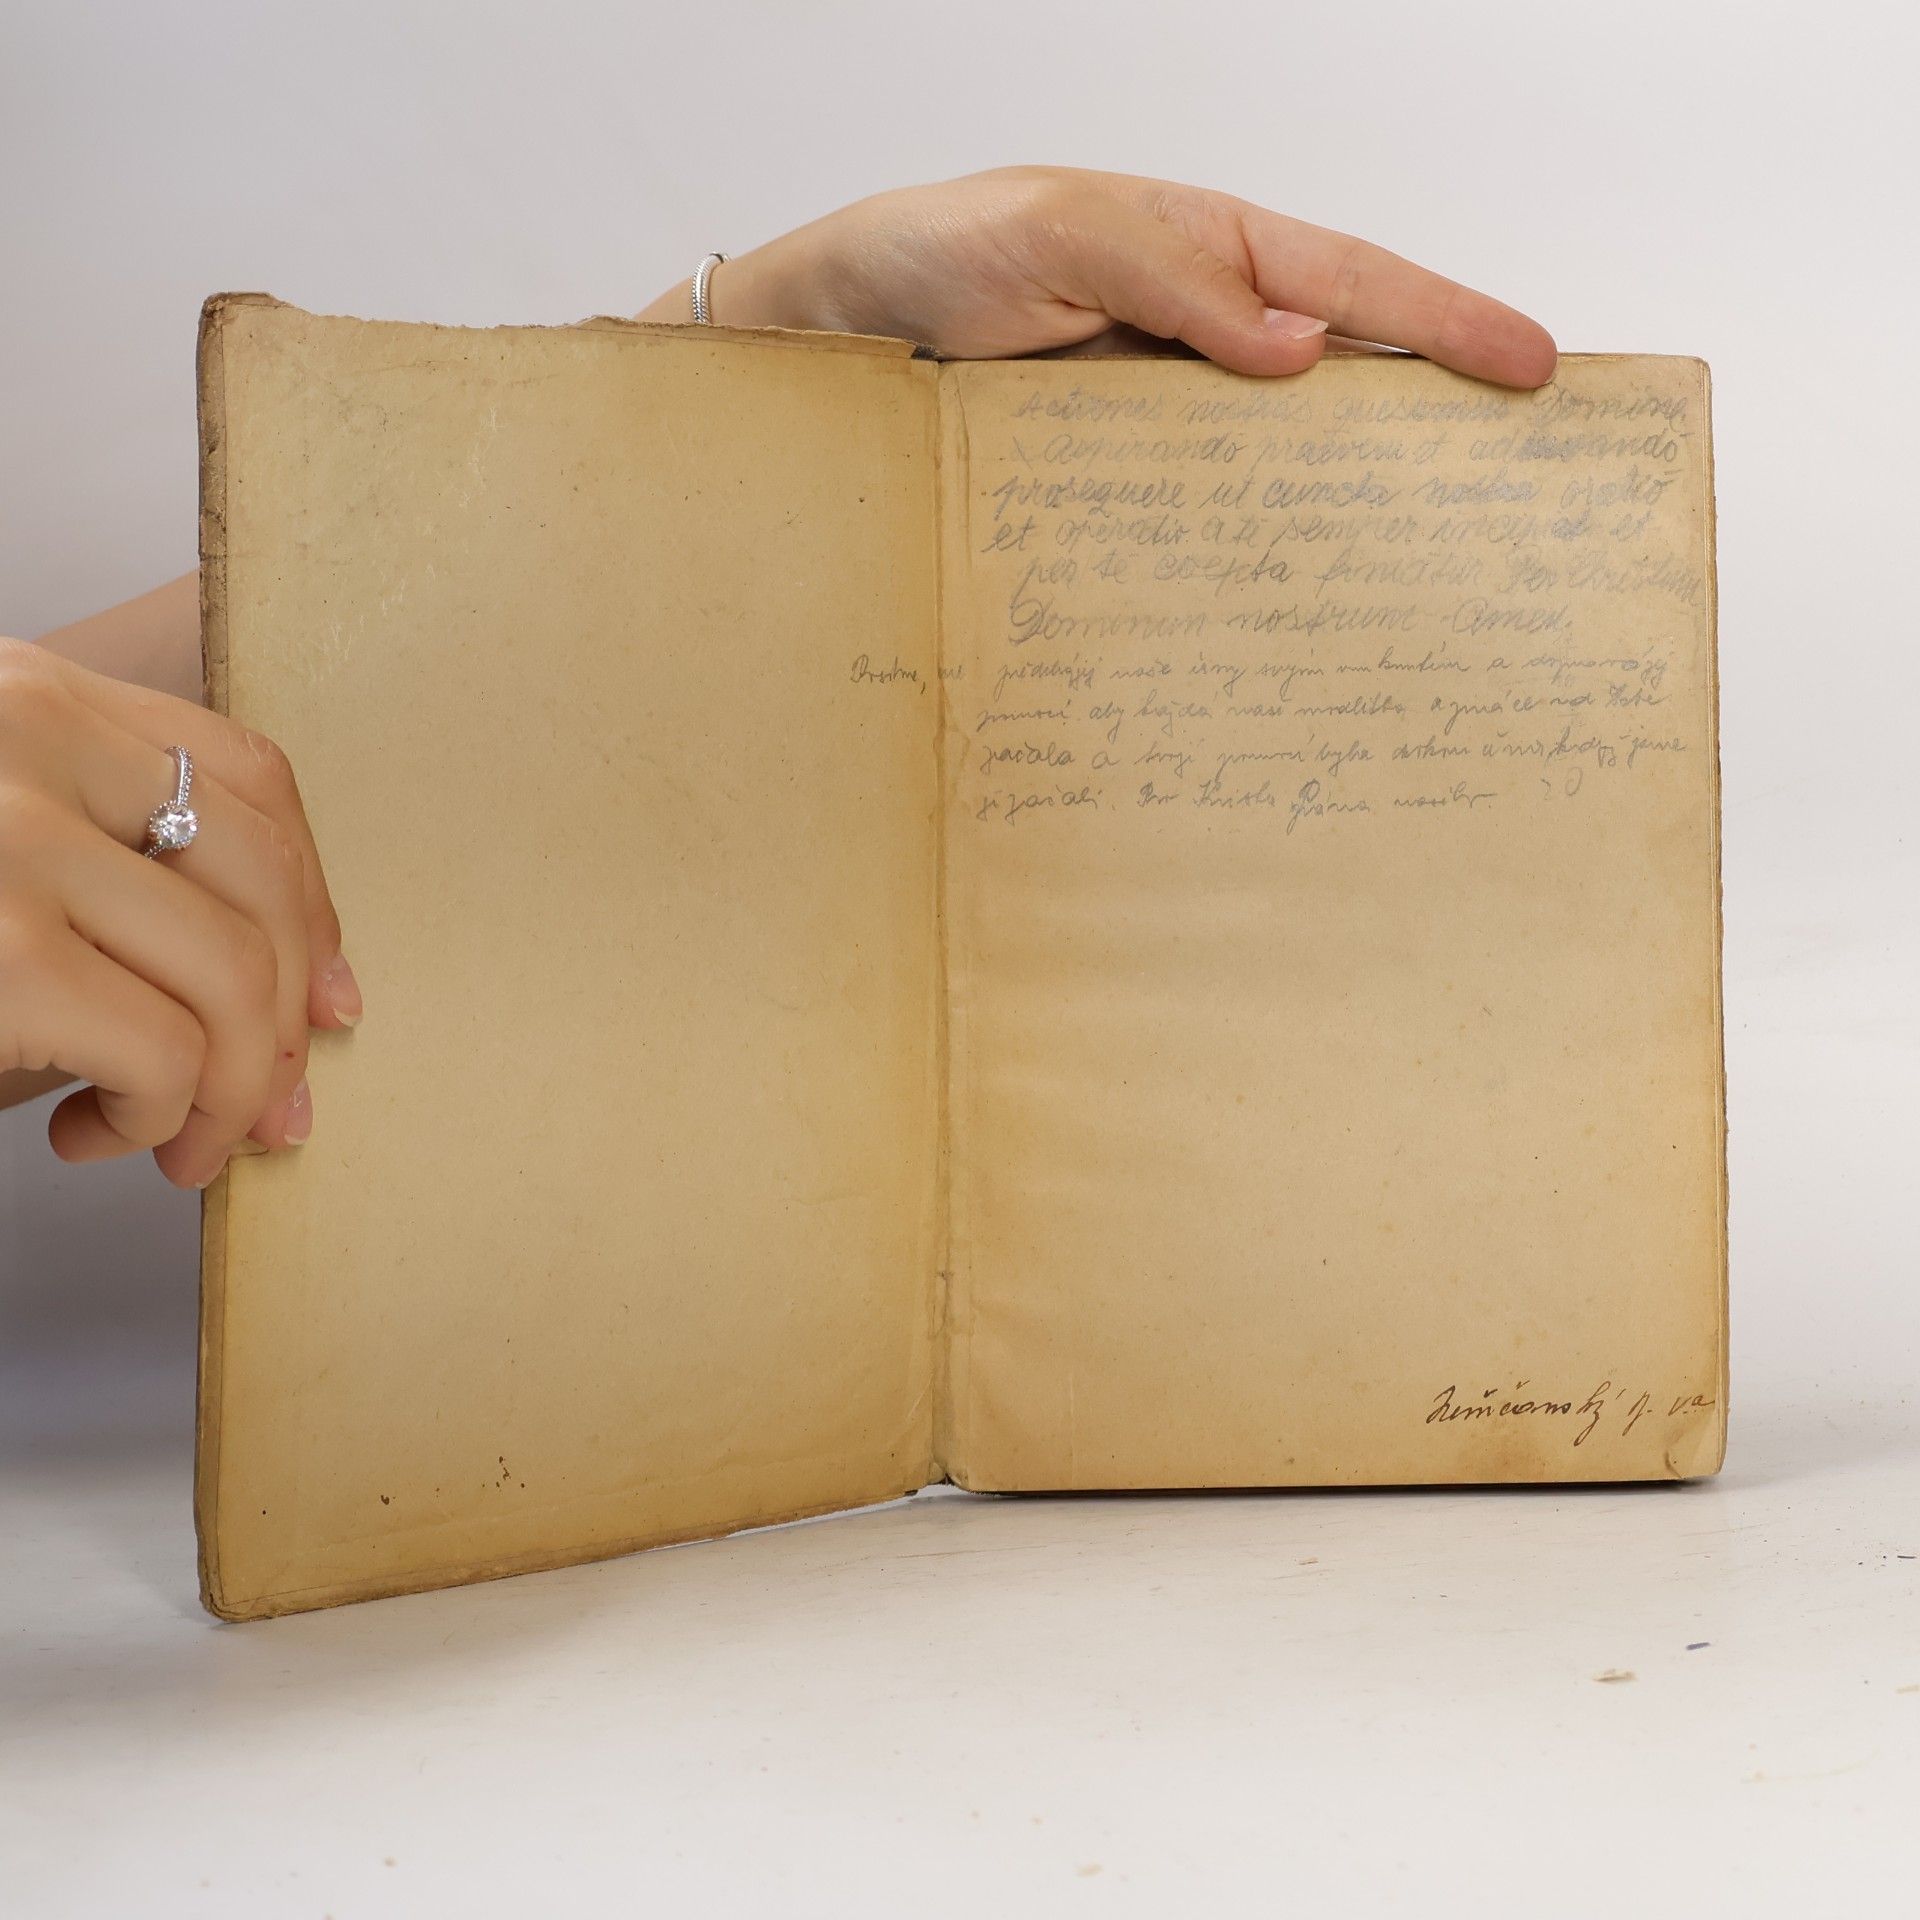 Actiones nostras quesumus Domine
aspirando praeveni et adiuvando
prosequere ut cuncta nostra oratio
et operatio a te semper incipiat et
per te coepta finiatur Per Christum
Dominum nostrum Amen.
Prosíme, naše činy svým vnuknutím a
pomocí aby každá naše modlitba a práce od Tebe
začala a tvojí pomocí byla jsme
ji začali. Pro Krista Pána našeho.
Němčanský J. V.a